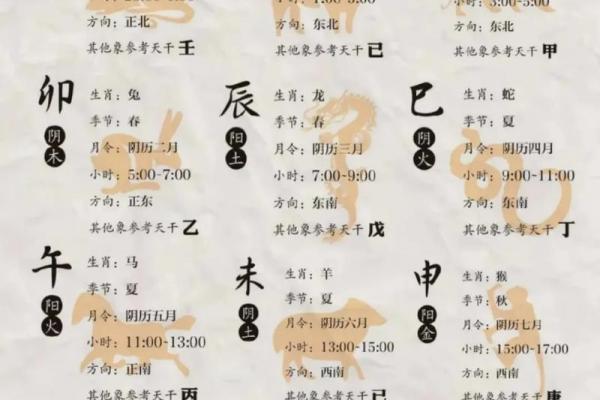 方向：正北
其他象参考天干壬
方向：东北
其他象参考天干己
3:00-5:00
方向：东北
其他象参考天干甲
卯
阴木
生肖：兔
季节：春
月令：阴历二月
小时：5:00-7:00
方向：正东
其他象参考天干乙
辰
阳土
生肖：龙
季节：春
月令：阴历三月
小时：7:00-9:00
方向：东南
其他象参考天干戊
巳
阴火
生肖：蛇
季节：夏
月令：阴历四月
小时：9:00-11:00
方向：东南
其他象参考天干丁
午
阳火
生肖：马
季节：夏
月令：阴历五月
小时：11:00-13:00
方向：正南
其他象参考天干丙
未
阴土
生肖：羊
季节：夏
月令：阴历六月
小时：13:00-15:00
方向：西南
其他象参考天干己
申
阳金
生肖：猴
季节：秋
月令：阴历七月
小时：15:00-17:00
方向：西南
其他象参考天干庚